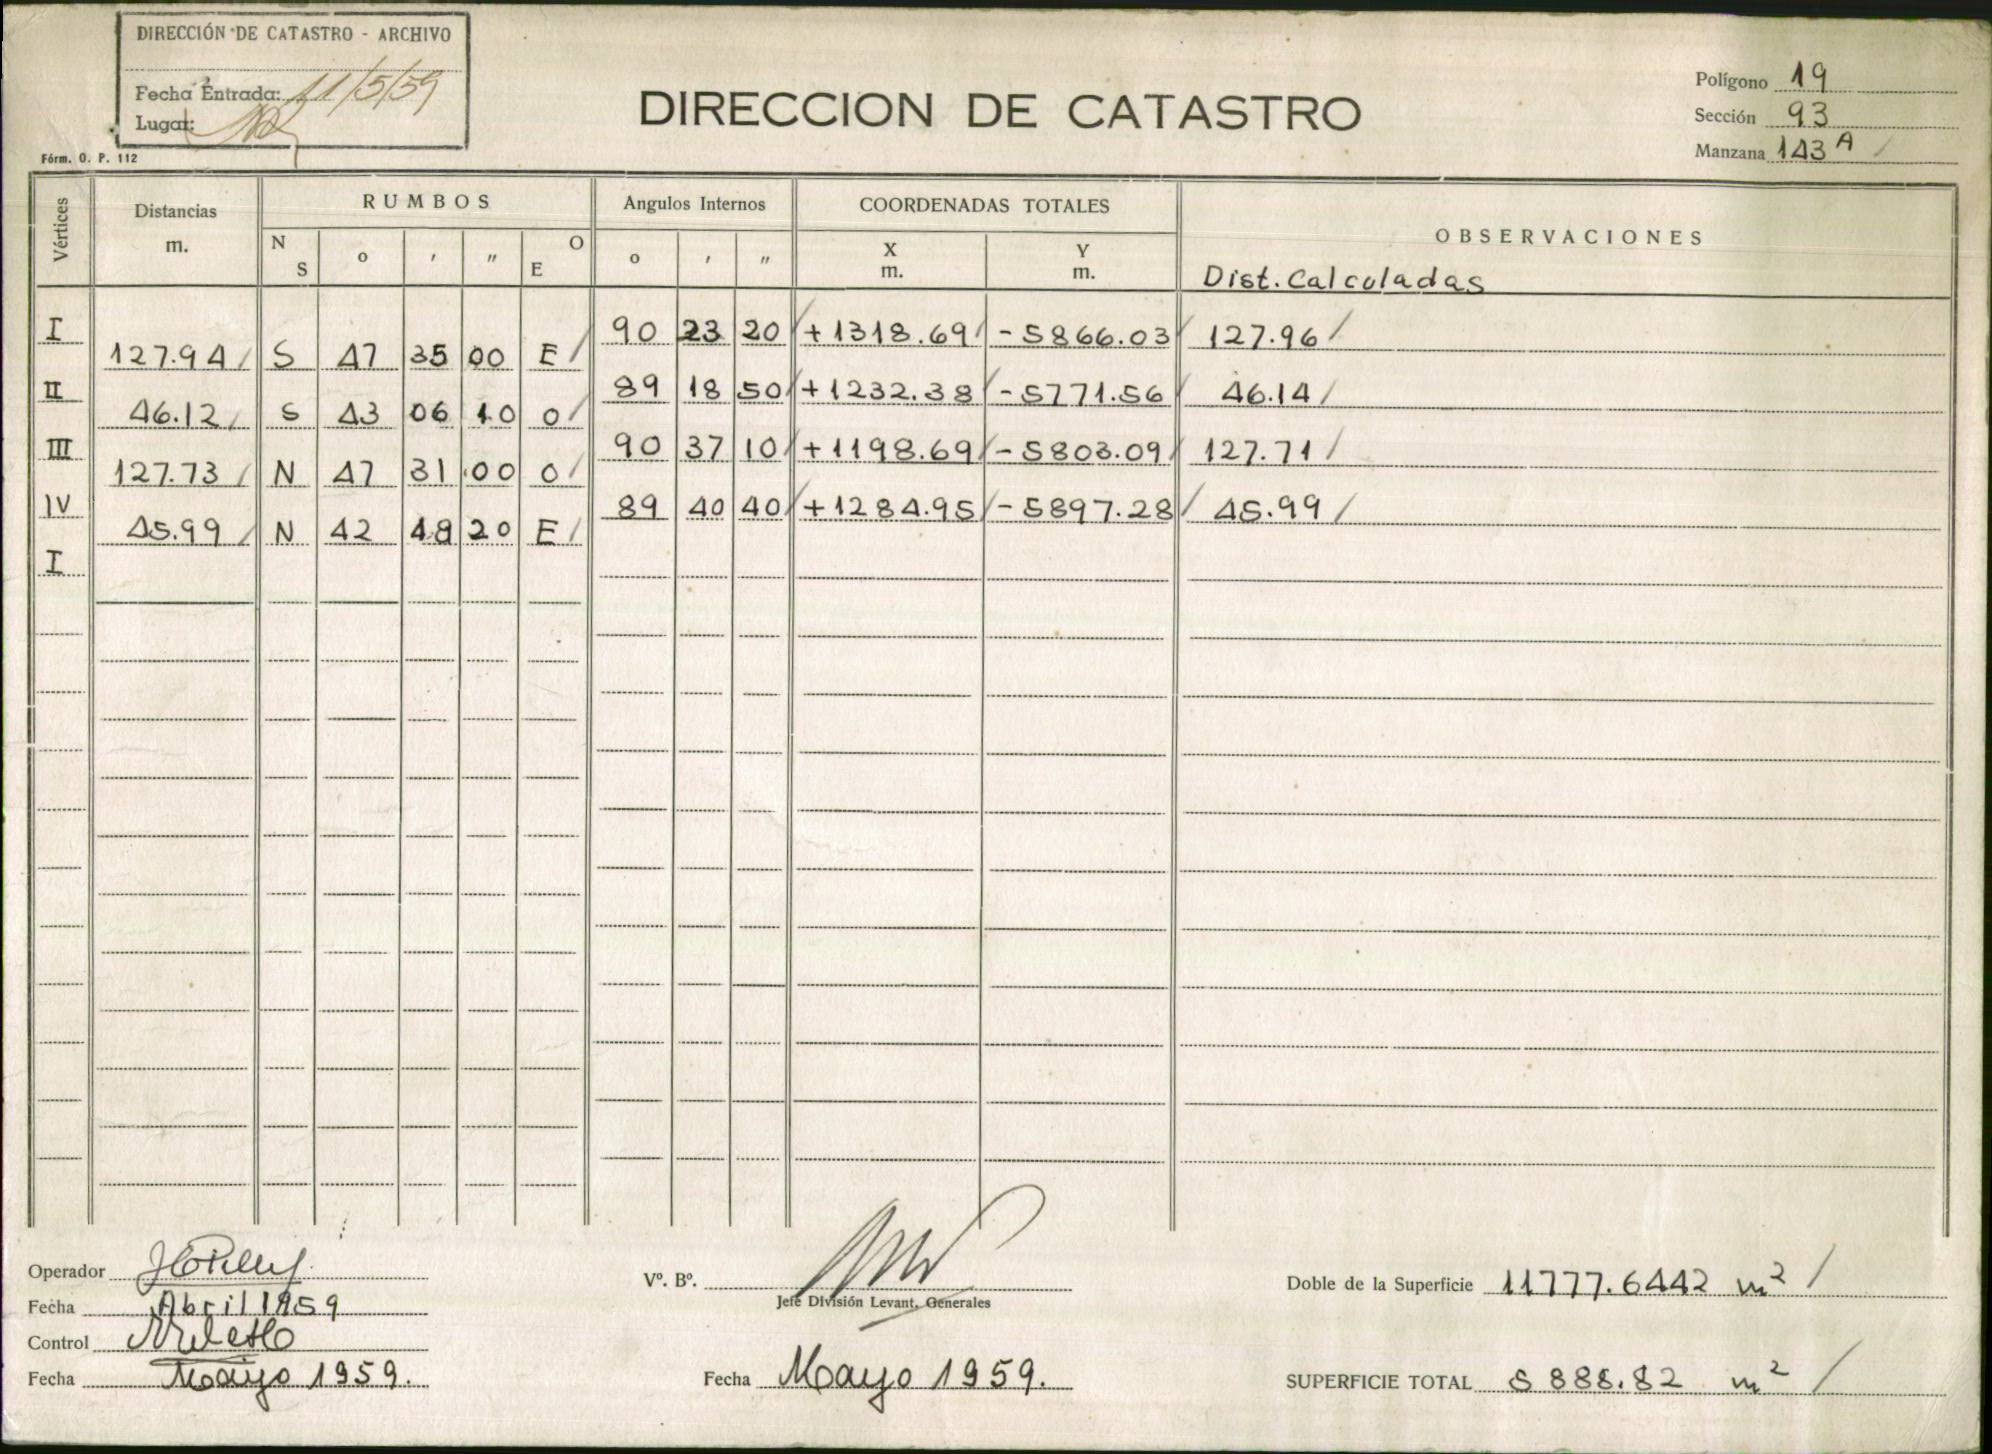 DIRECCIÓN DE CATASTRO - ARCHIVO
Fecha Entrada: 11/5/59
Lugar:
Fórm. O. P. 112
DIRECCION DE CATASTRO
Polígono 19
Sección 93
Manzana 143 A
Vértices
Distancias m.
RUMBOS
Angulos Internos
COORDENADAS TOTALES
OBSERVACIONES
N S o ' " O E
o ' "
X m. Y m.
Dist. Calculadas
I 90 23 20 +1318.69 -5866.03 127.96
127.94 S 47 35 00 E
II 89 18 50 +1232.38 -5771.56 46.14
46.12 S 43 06 10 O
III 90 37 10 +1198.69 -5803.09 127.71
127.73 N 47 31 00 O
IV 89 40 40 +1284.95 -5897.28 45.99
45.99 N 42 48 20 E
I
Operador
Fecha Abril 1959
Control
Fecha Mayo 1959.
Vº. Bº.
Jefe División Levant. Generales
Fecha Mayo 1959.
Doble de la Superficie 11777.6442 m2
SUPERFICIE TOTAL 5888.82 m2